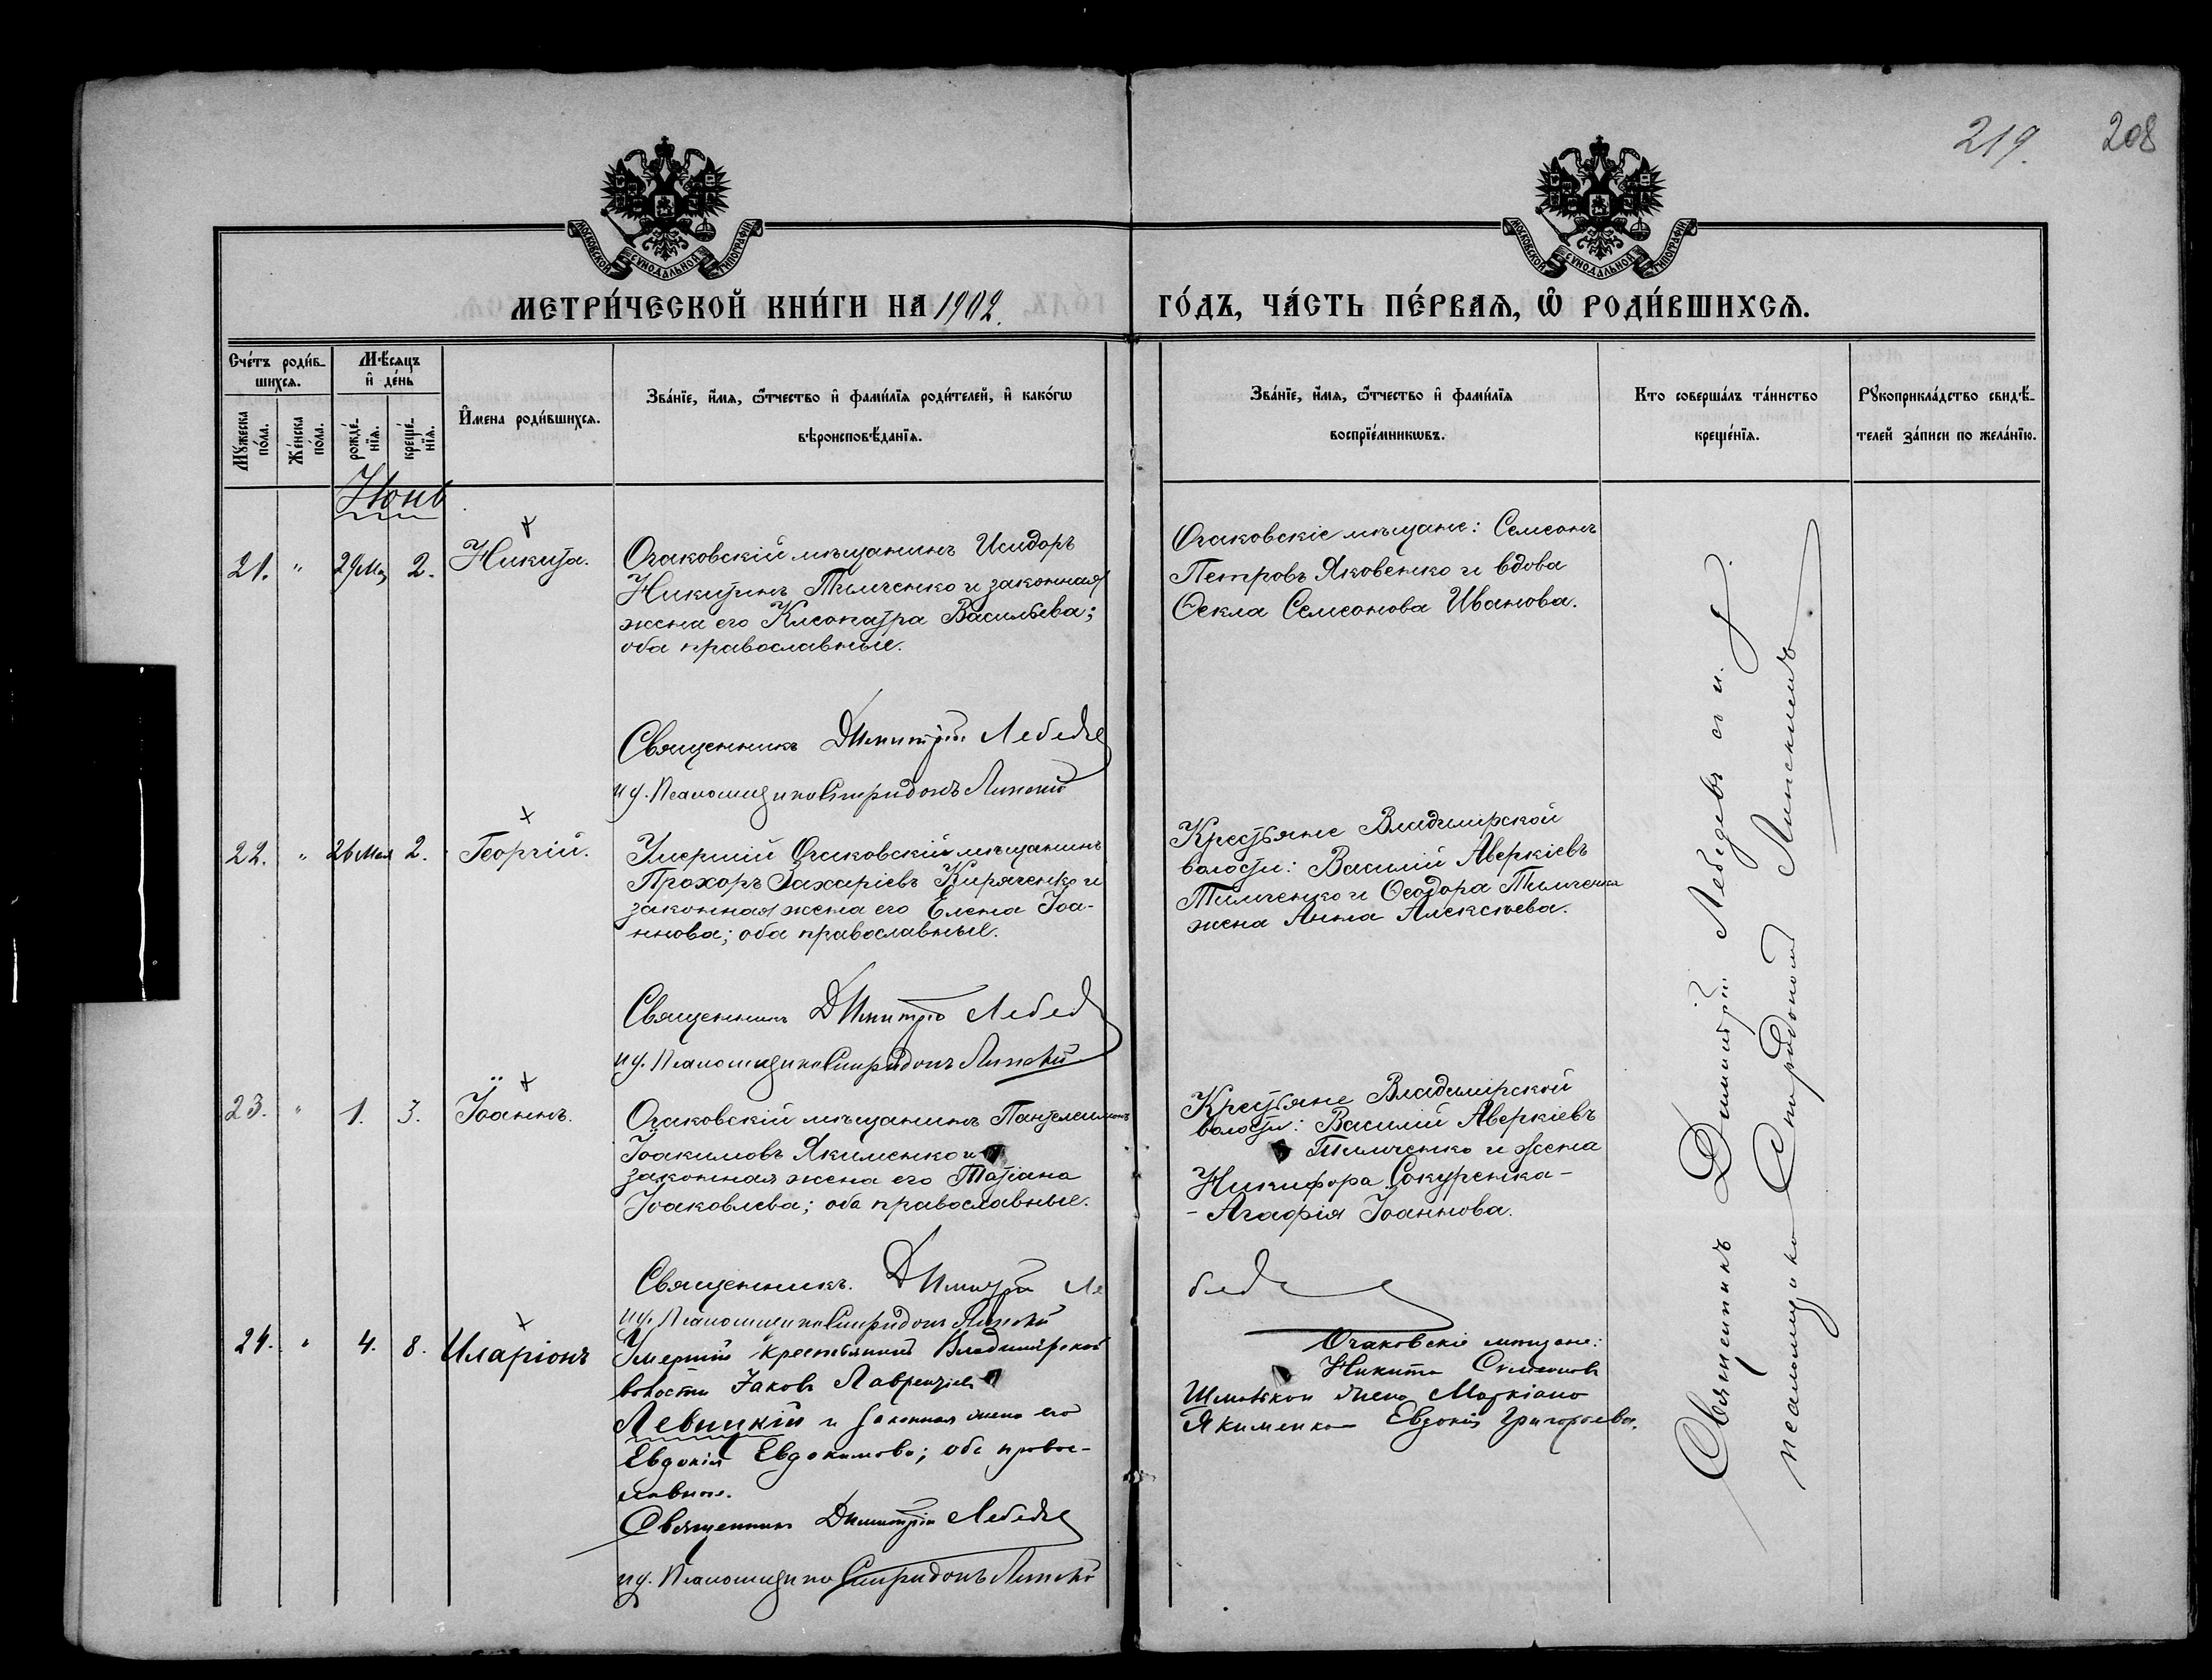 219. 208
МОСКОВСКОЙ СѴНОДАЛЬНОЙ ТИПОГРАФІИ
МОСКОВСКОЙ СѴНОДАЛЬНОЙ ТИПОГРАФІИ
МЕТРИ́ЧЕСКОЙ КНИ́ГИ НА 1902. ГО́ДЪ, ЧА́СТЬ ПЕ́РВАѦ, Ѡ҆ РОДИ́ВШИХСѦ.
Сче́тъ роди́в-
шихсѧ.
Мѣ́сѧцъ
и҆ де́нь
Мꙋ́жеска
по́ла.
Же́нска
по́ла.
рожде́-
нїѧ.
креще́-
нїѧ.
И҆мена роди́вшихсѧ.
Зва́нїе, и҆́мѧ, ѻ҆́тчество и҆ фами́лїѧ роди́телей, и҆ како́гѡ
вѣроисповѣ́данїѧ.
Зва́нїе, и҆́мѧ, ѻ҆́тчество и҆ фами́лїѧ
воспрїе́мникѡвъ.
Кто соверша́лъ та́инство
креще́нїѧ.
Рꙋкоприкла́дство свидѣ́-
телей за́писи по жела́нїю.
Июнь
21. " 29 Мая 2. Никита.
Очаковскій мѣщанинъ Исидоръ
Никитинъ Тимченко и законная
жена его Клеопатра Васильева;
оба православные.
Священникъ Димитрій Лебеде
и д. Псаломщика Спиридонъ Липскій
Очаковскіе мѣщане: Симеонъ
Петровъ Яковенко и вдова
Ѳекла Семеонова Иванова.
22. " 26 Мая 2. Георгій.
Умершій Очаковскій мѣщанинъ
Прохоръ Захаріевъ Киряченко и
законная жена его Елена Іоа-
ннова; оба православные.
Священникъ Димитрій Лебед
и д. Псаломщика Спиридонъ Липскій
Крестьяне Владимірской
волости: Василій Аверкіевъ
Тимченко и Ѳеодора Тимченка
жена Анна Алексѣева.
23. " 1. 3. Іоаннъ.
Очаковскій мѣщанинъ Пантелеимонъ
Іоакимовъ Якименко и
законная жена его Татіана
Іоаковлева; оба православные.
Священникъ. Димитрій Ле
бед
и д. Псаломщика Спиридонъ Липскій
Крестьяне Владимірской
волости: Василій Аверкіевъ
Тимченко и жена
Никифора Сокуренка -
- Агафія Іоаннова.
24. " 4. 8. Иларіонъ
Умершій крестьянинъ Владимірской
волости Іаковъ Лаврентіевъ
Левицкій и законная жена его
Евдокія Евдокимова; оба правос-
лавные.
Священникъ Димитрій Лебеде
и д. Псаломщика Спиридонъ Липскій
Очаковскіе мѣщане:
Никита Симеоновъ
жена Маркіана
Якименка Евдокія Григорьева.
Священникъ Димитрій Лебедевъ съ и. д.
псаломщика Спиридономъ Липскимъ